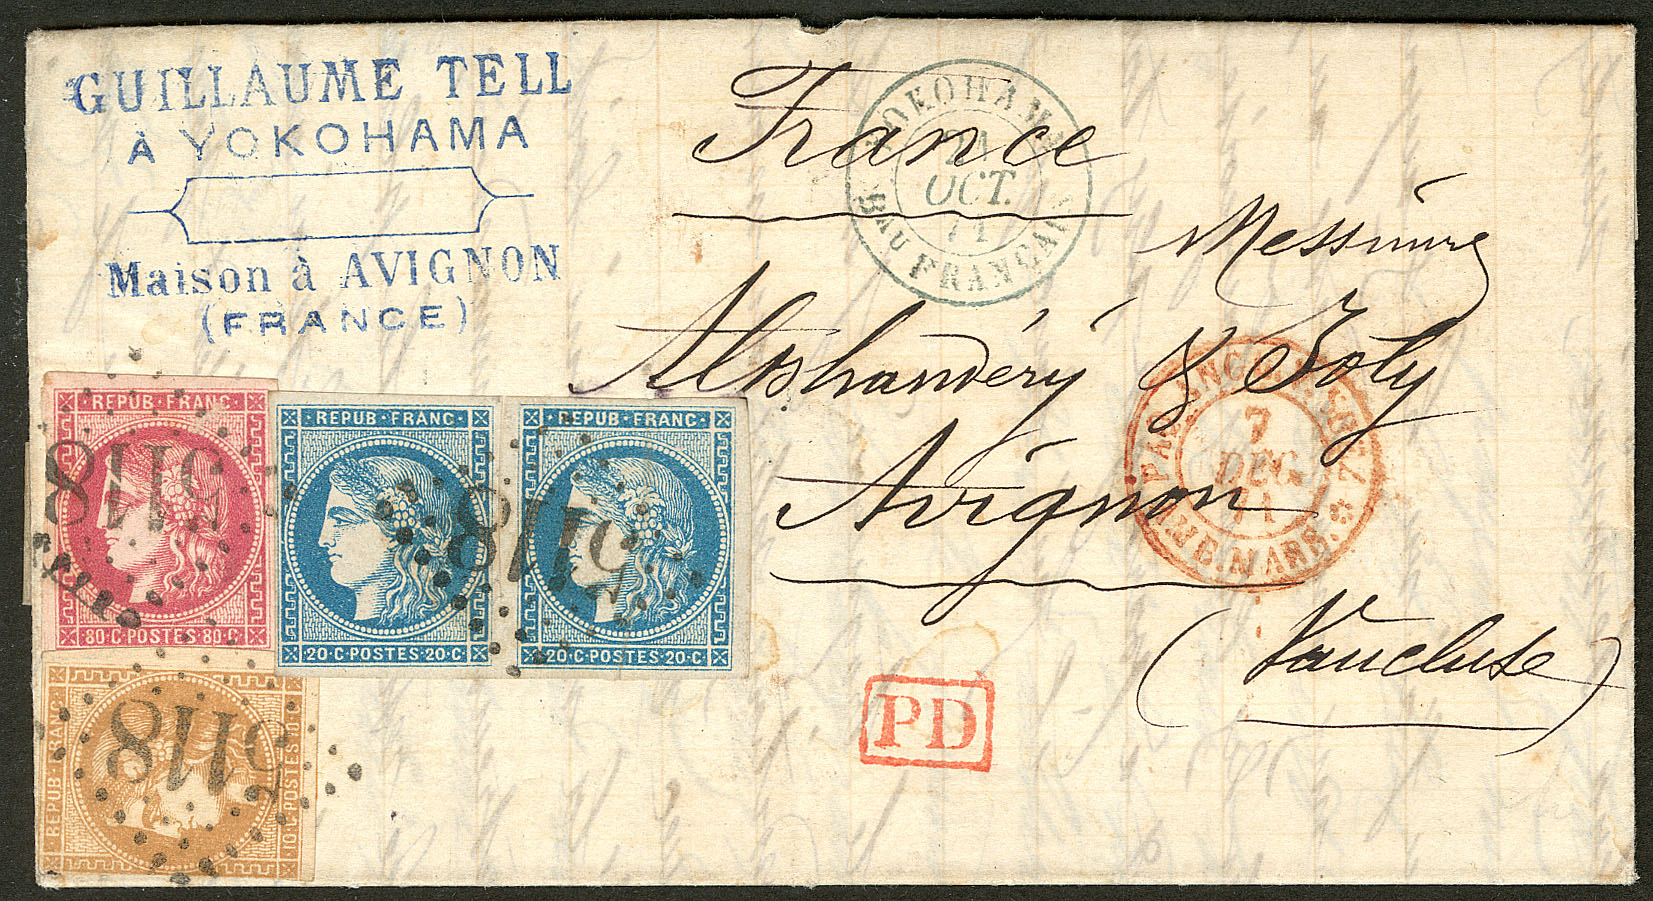 GUILLAUME TELL
À YOKOHAMA
Maison à AVIGNON
(FRANCE)
France
YOKOHAMA
24
OCT.
71
Bau FRANÇAIS
Messieurs
Alphandéry & Joly
Avignon
(Vaucluse)
7
DEC.
71
AMB. MARS.
PD
REPUB·FRANC·
80·C·POSTES·80·C·
REPUB·FRANC·
20·C·POSTES·20·C·
REPUB·FRANC·
20·C·POSTES·20·C·
REPUB·FRANC·
10·C·POSTES·10·C·
5118
5118
5118